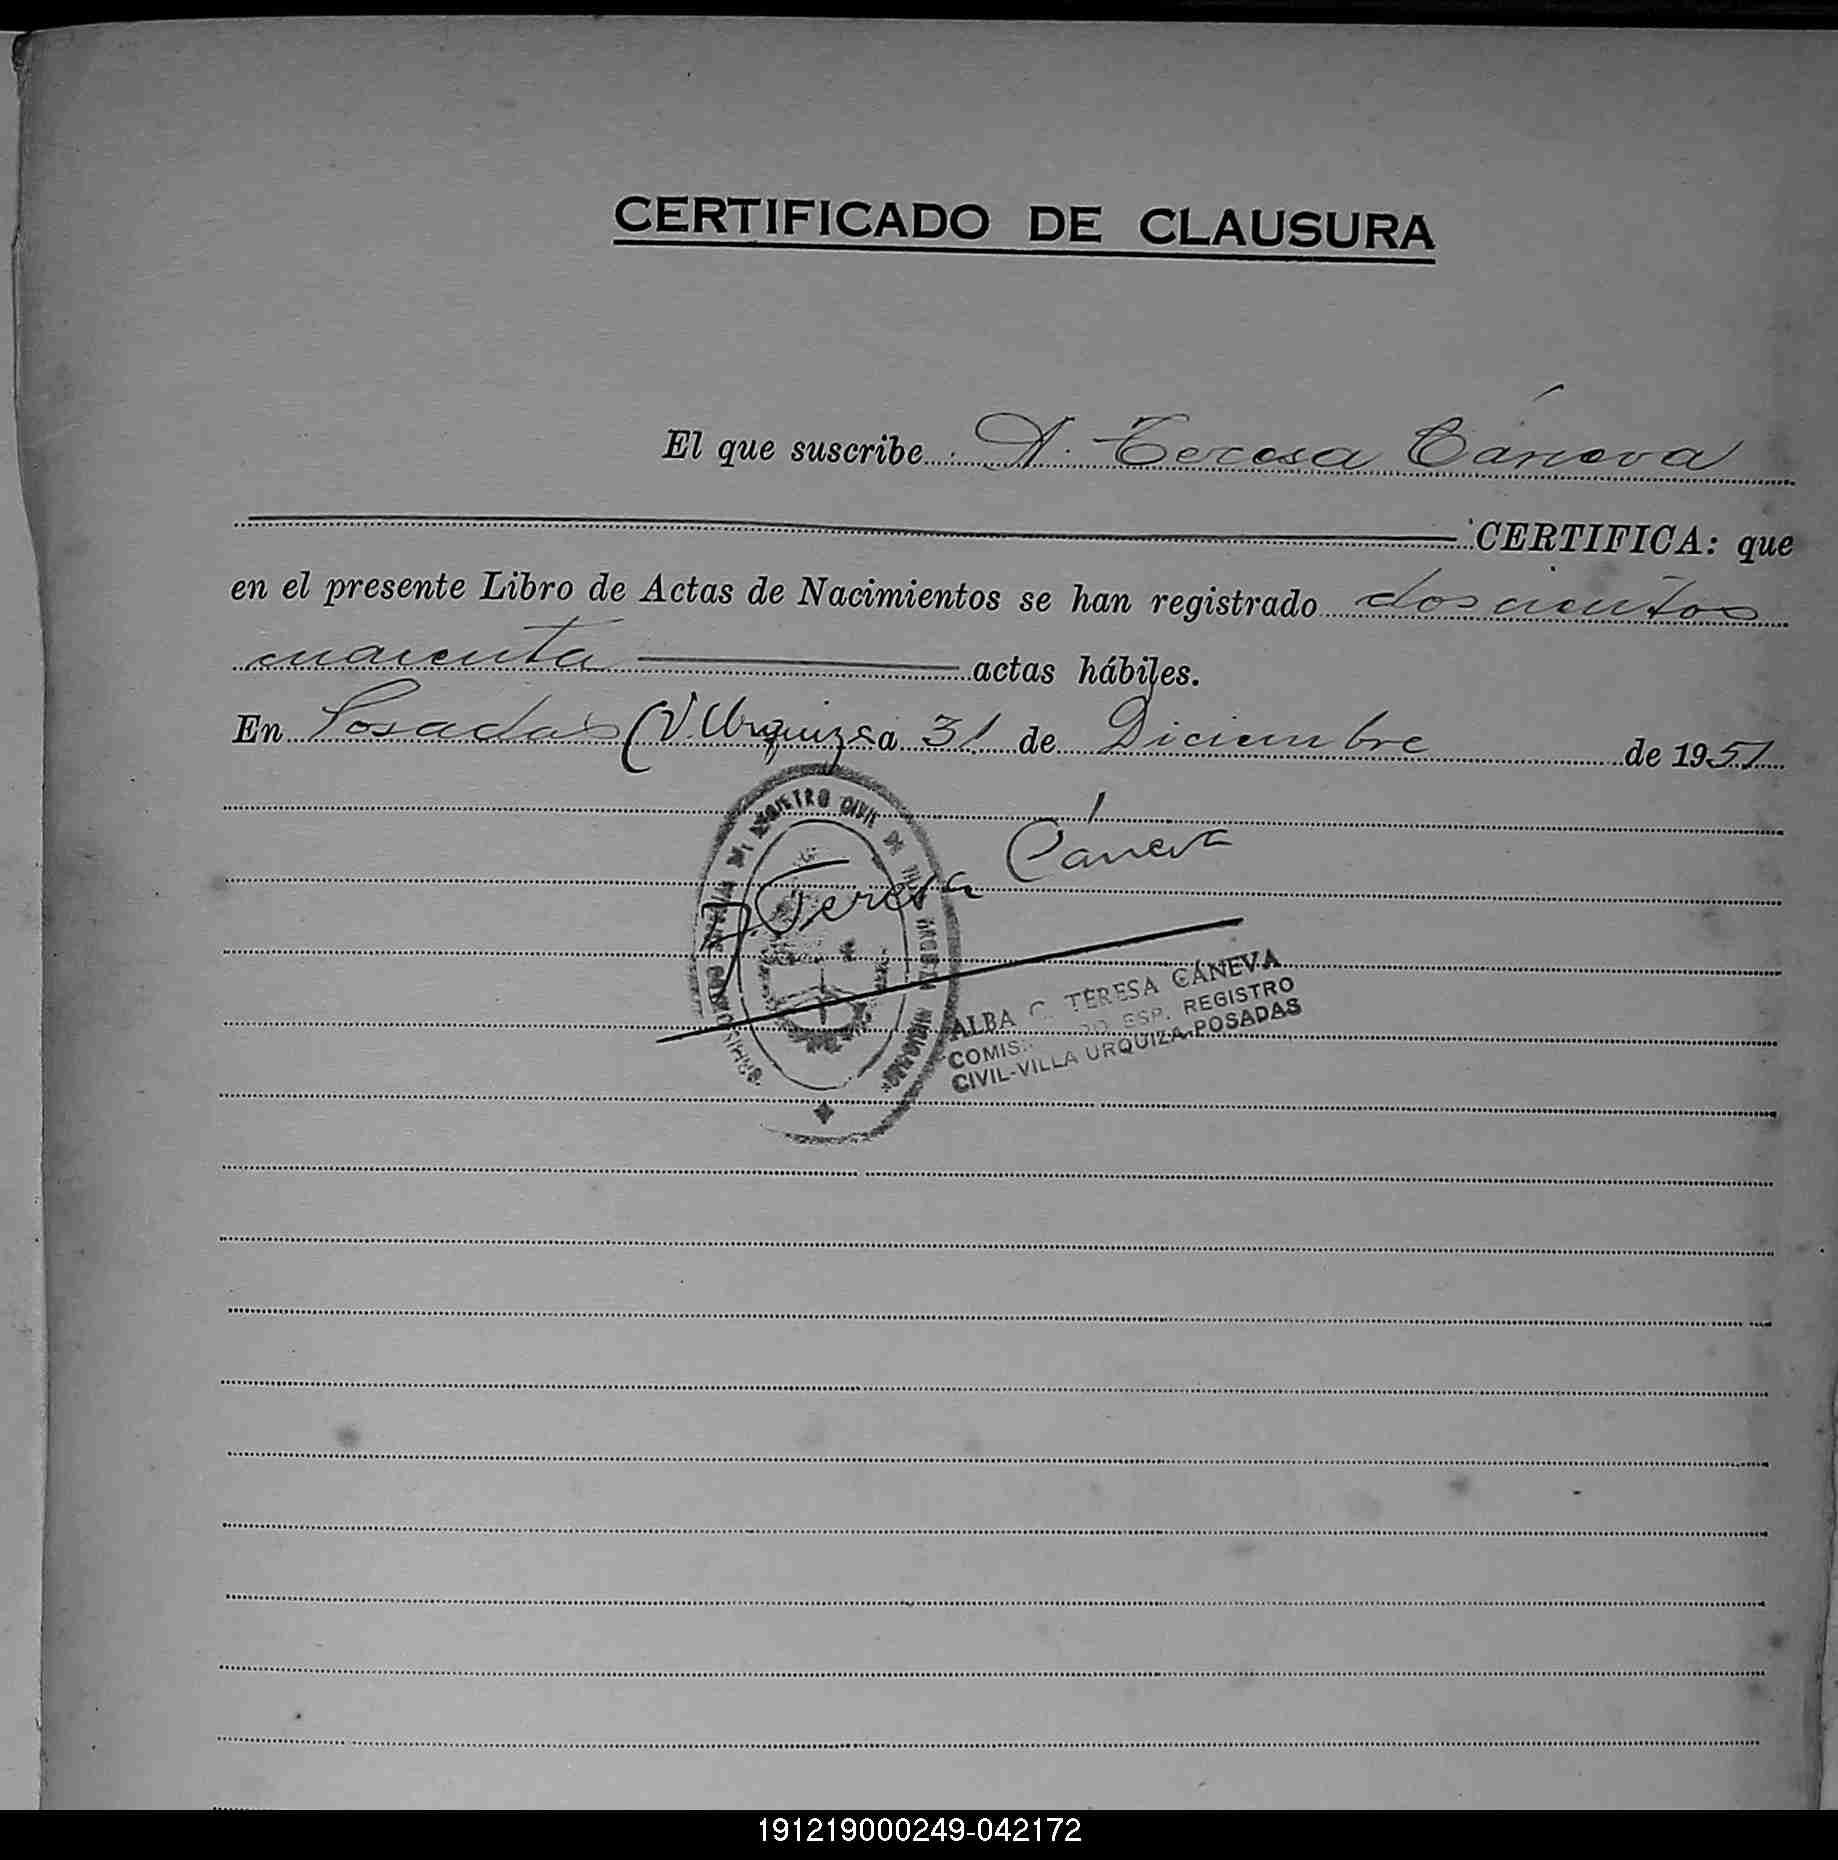 CERTIFICADO DE CLAUSURA
El que suscribe A. Teresa Cáneva
CERTIFICA: que
en el presente Libro de Actas de Nacimientos se han registrado doscientos
cuarenta actas hábiles.
En Posadas (V. Urquiza a 31 de Diciembre de 1951
REGISTRO CIVIL DE
Teresa Cáneva
ALBA C. TERESA CÁNEVA
ESP. REGISTRO
CIVIL-VILLA URQUIZA-POSADAS
191219000249-042172